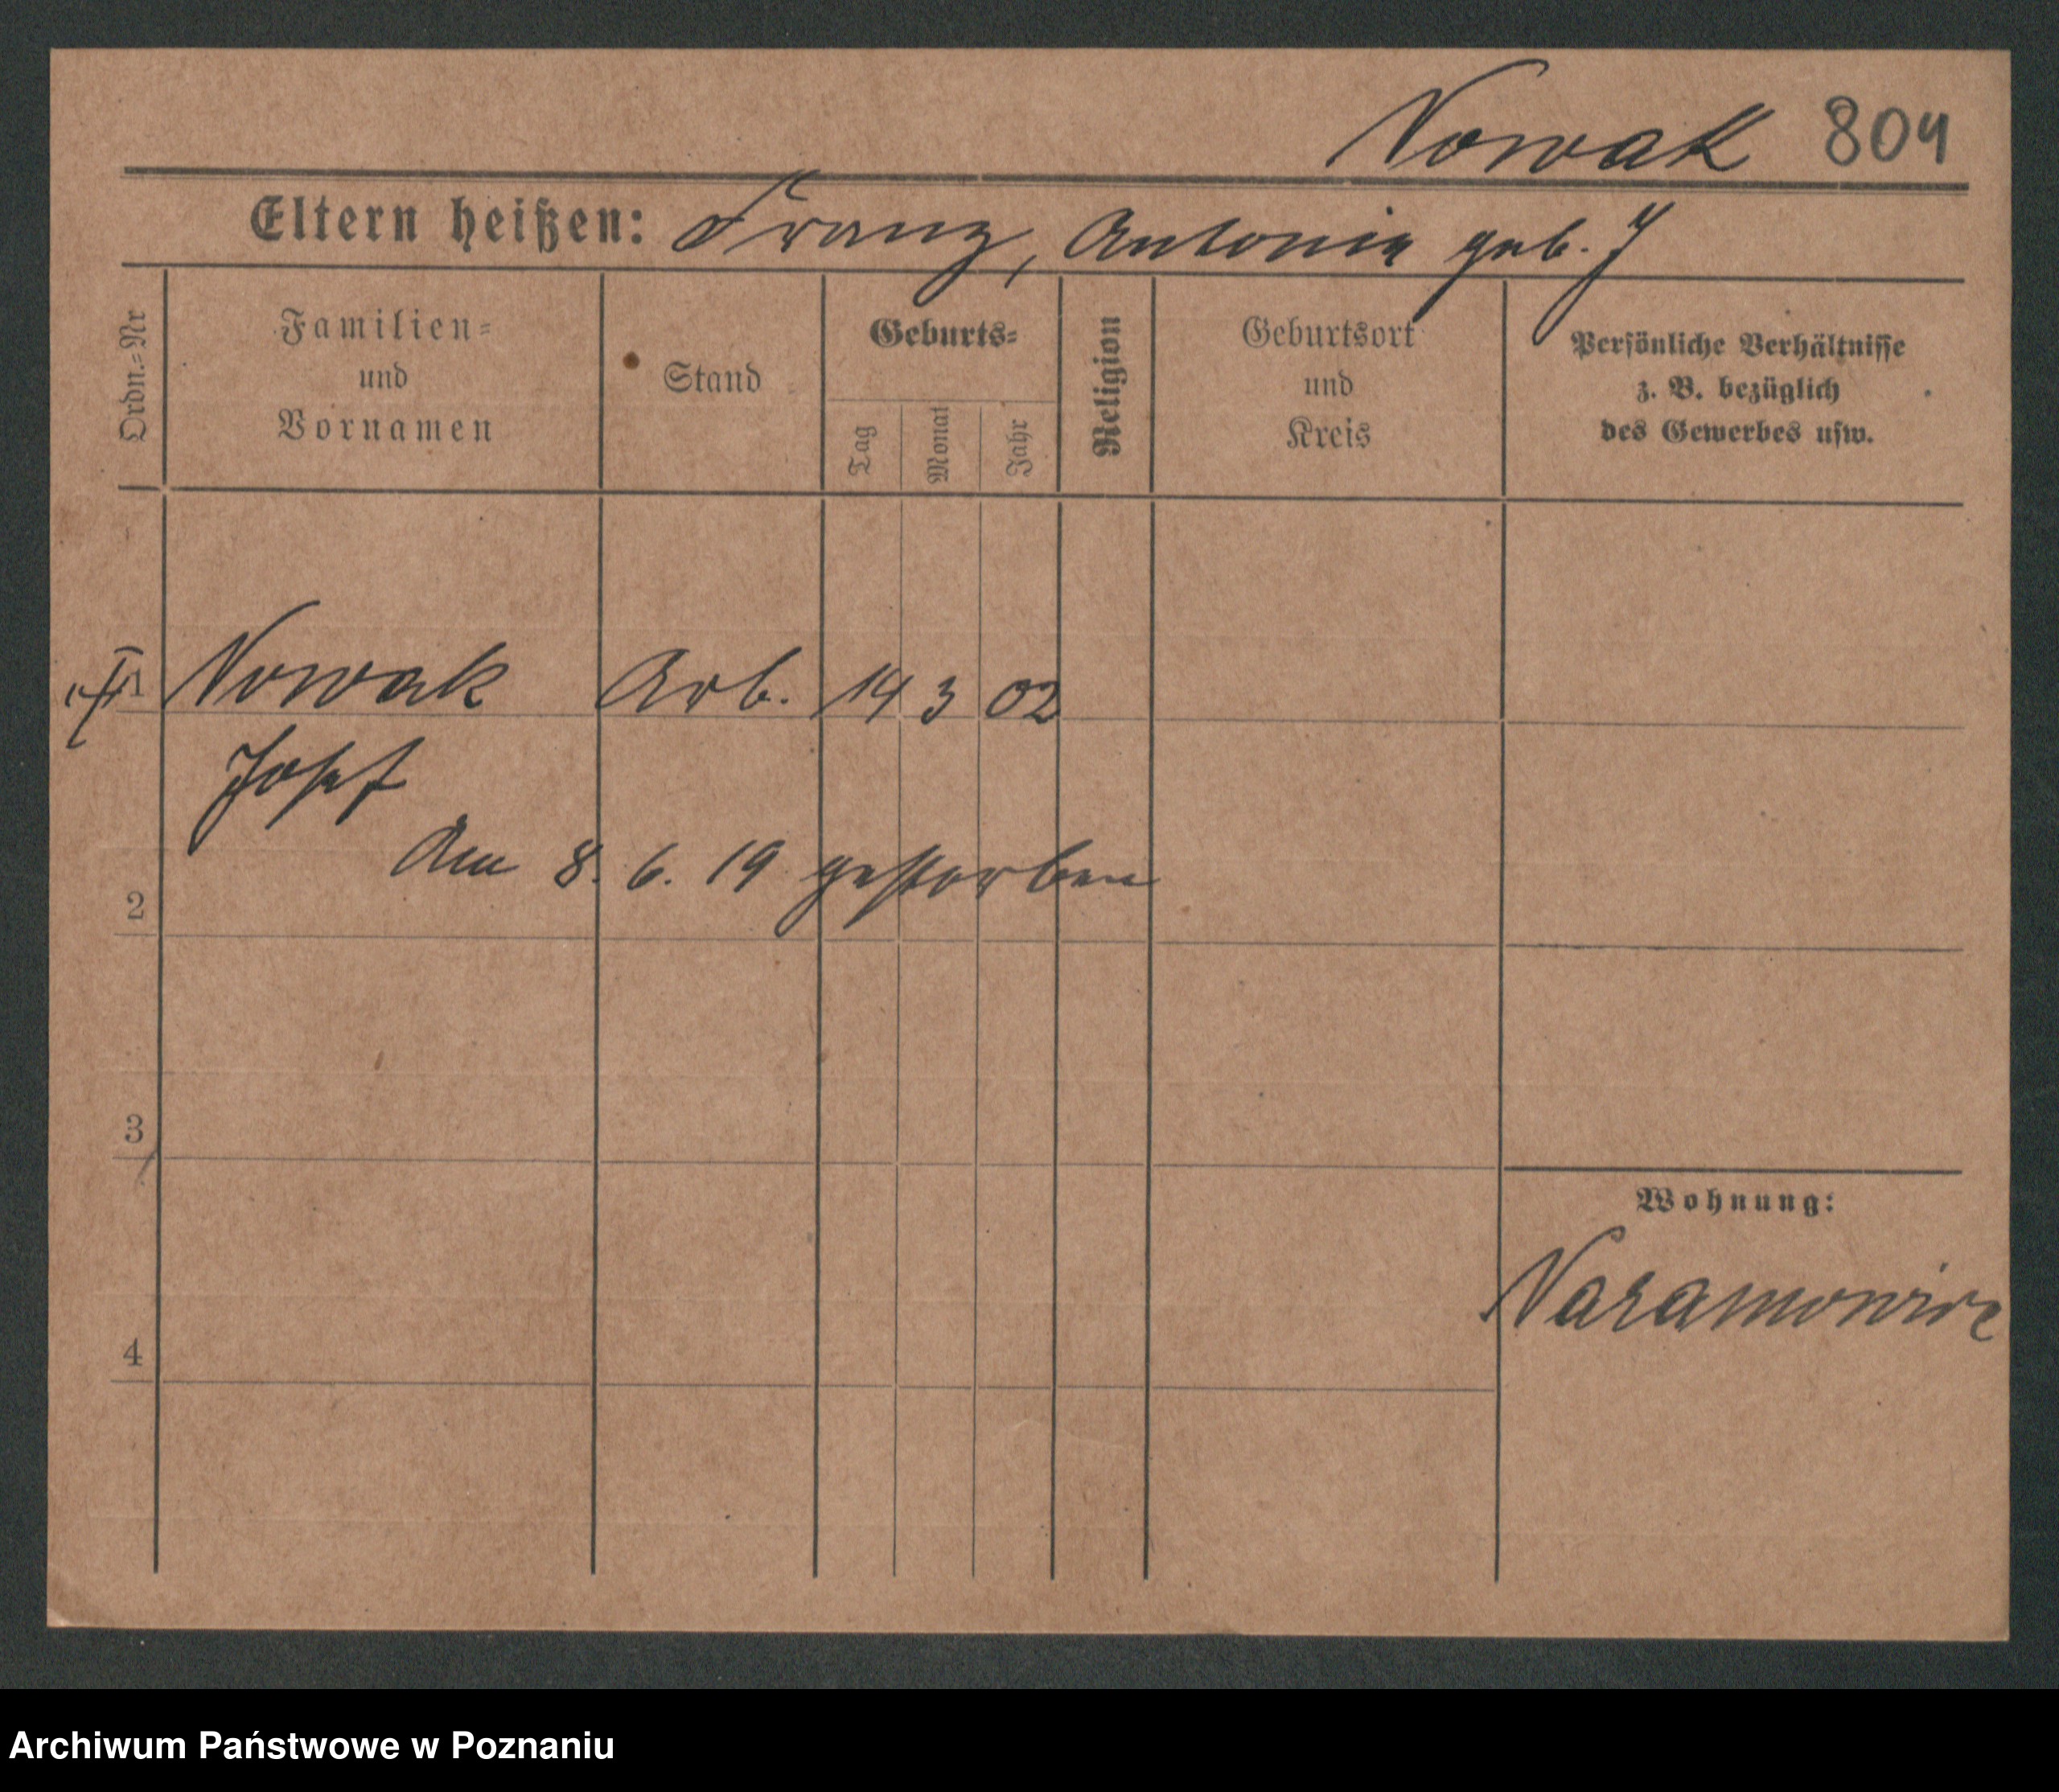 Nowak 804
Eltern heißen: Franz, Antonia geb. J
Ordn.=Nr
Familien=
und
Vornamen
Stand
Geburts=
Tag
Monat
Jahr
Religion
Geburtsort
und
Kreis
Persönliche Verhältnisse
z. B. bezüglich
des Gewerbes usw.
1 Nowak Arb. 14 3 02
Josef
Am 8. 6. 19 gestorben
2
3
4
Wohnung:
Naramowice
Archiwum Państwowe w Poznaniu